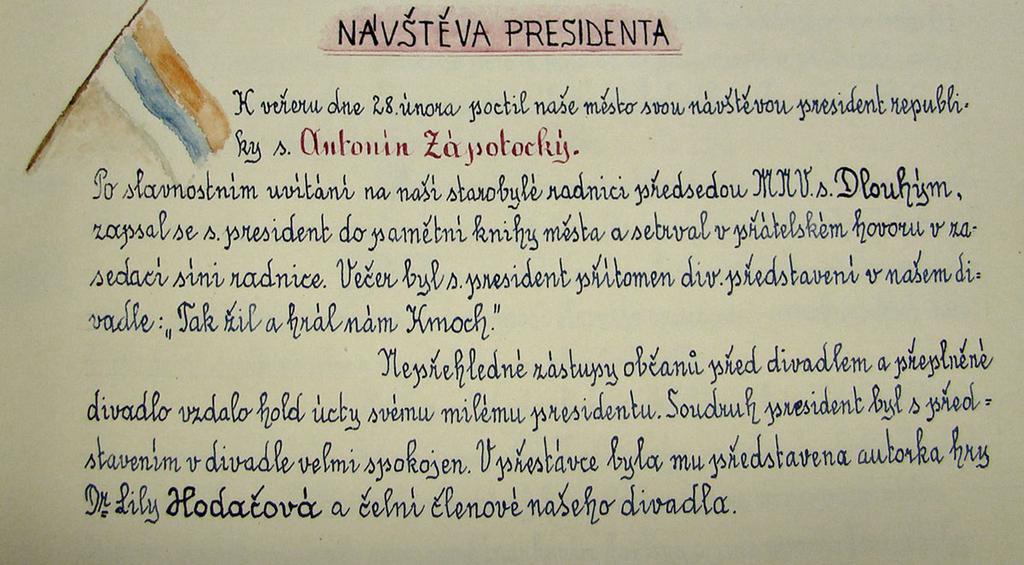 NÁVŠTĚVA PRESIDENTA
K večeru dne 28. února poctil naše město svou návštěvou president republi-
ky s. Antonín Zápotocký.
Po slavnostním uvítání na naší starobylé radnici předsedou MNV. s. Dlouhým,
zapsal se s. president do pamětní knihy města a setrval v přátelském hovoru v za-
sedací síni radnice. Večer byl s. president přítomen div. představení v našem di-
vadle: „Tak žil a hrál nám Kmoch."
Nepřehledné zástupy občanů před divadlem a přeplněné
divadlo vzdalo hold úcty svému milému presidentu. Soudruh president byl s před-
stavením v divadle velmi spokojen. V přestávce byla mu představena autorka hry
Dr. Lily Hodačová a čelní členové našeho divadla.